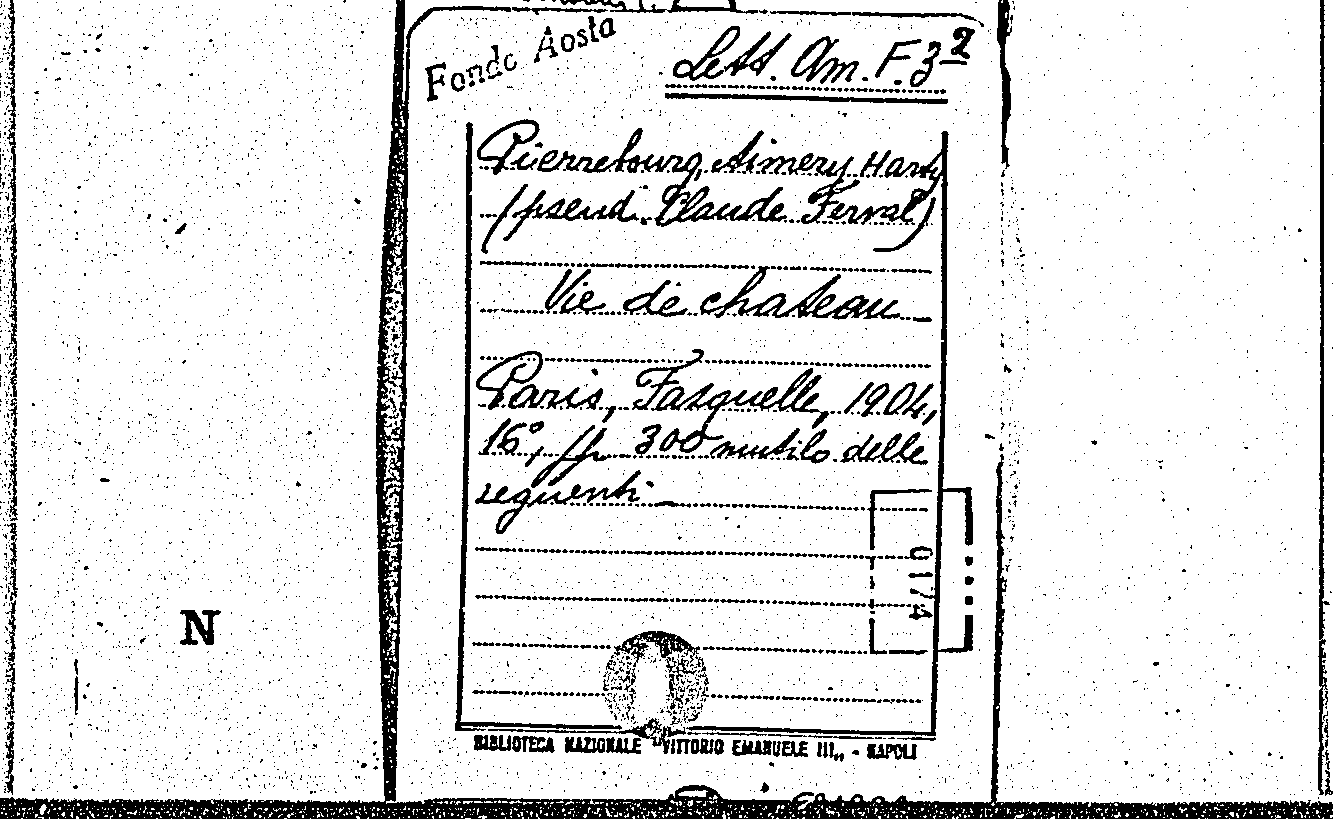 Fondo Aosta
Lett. Am. F. 3²
Pierrebourg, Aimery Harty
(pseud. Claude Ferval)
Vie de chateau
Paris, Fasquelle, 1904,
16°, pp 300 mutilo delle
seguenti
0174
N
BIBLIOTECA NAZIONALE "VITTORIO EMANUELE III„ - NAPOLI